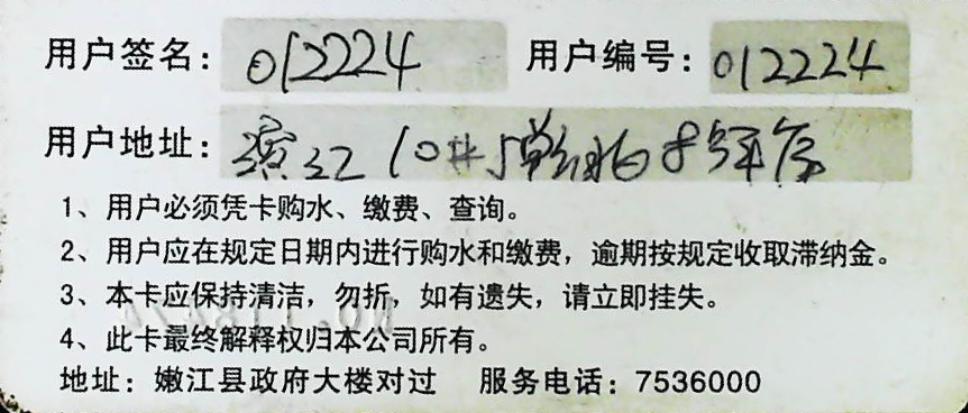 用户签名：012224 用户编号：012224
用户地址：滨江10#5单
1、用户必须凭卡购水、缴费、查询。
2、用户应在规定日期内进行购水和缴费，逾期按规定收取滞纳金。
3、本卡应保持清洁，勿折，如有遗失，请立即挂失。
4、此卡最终解释权归本公司所有。
地址：嫩江县政府大楼对过 服务电话：7536000